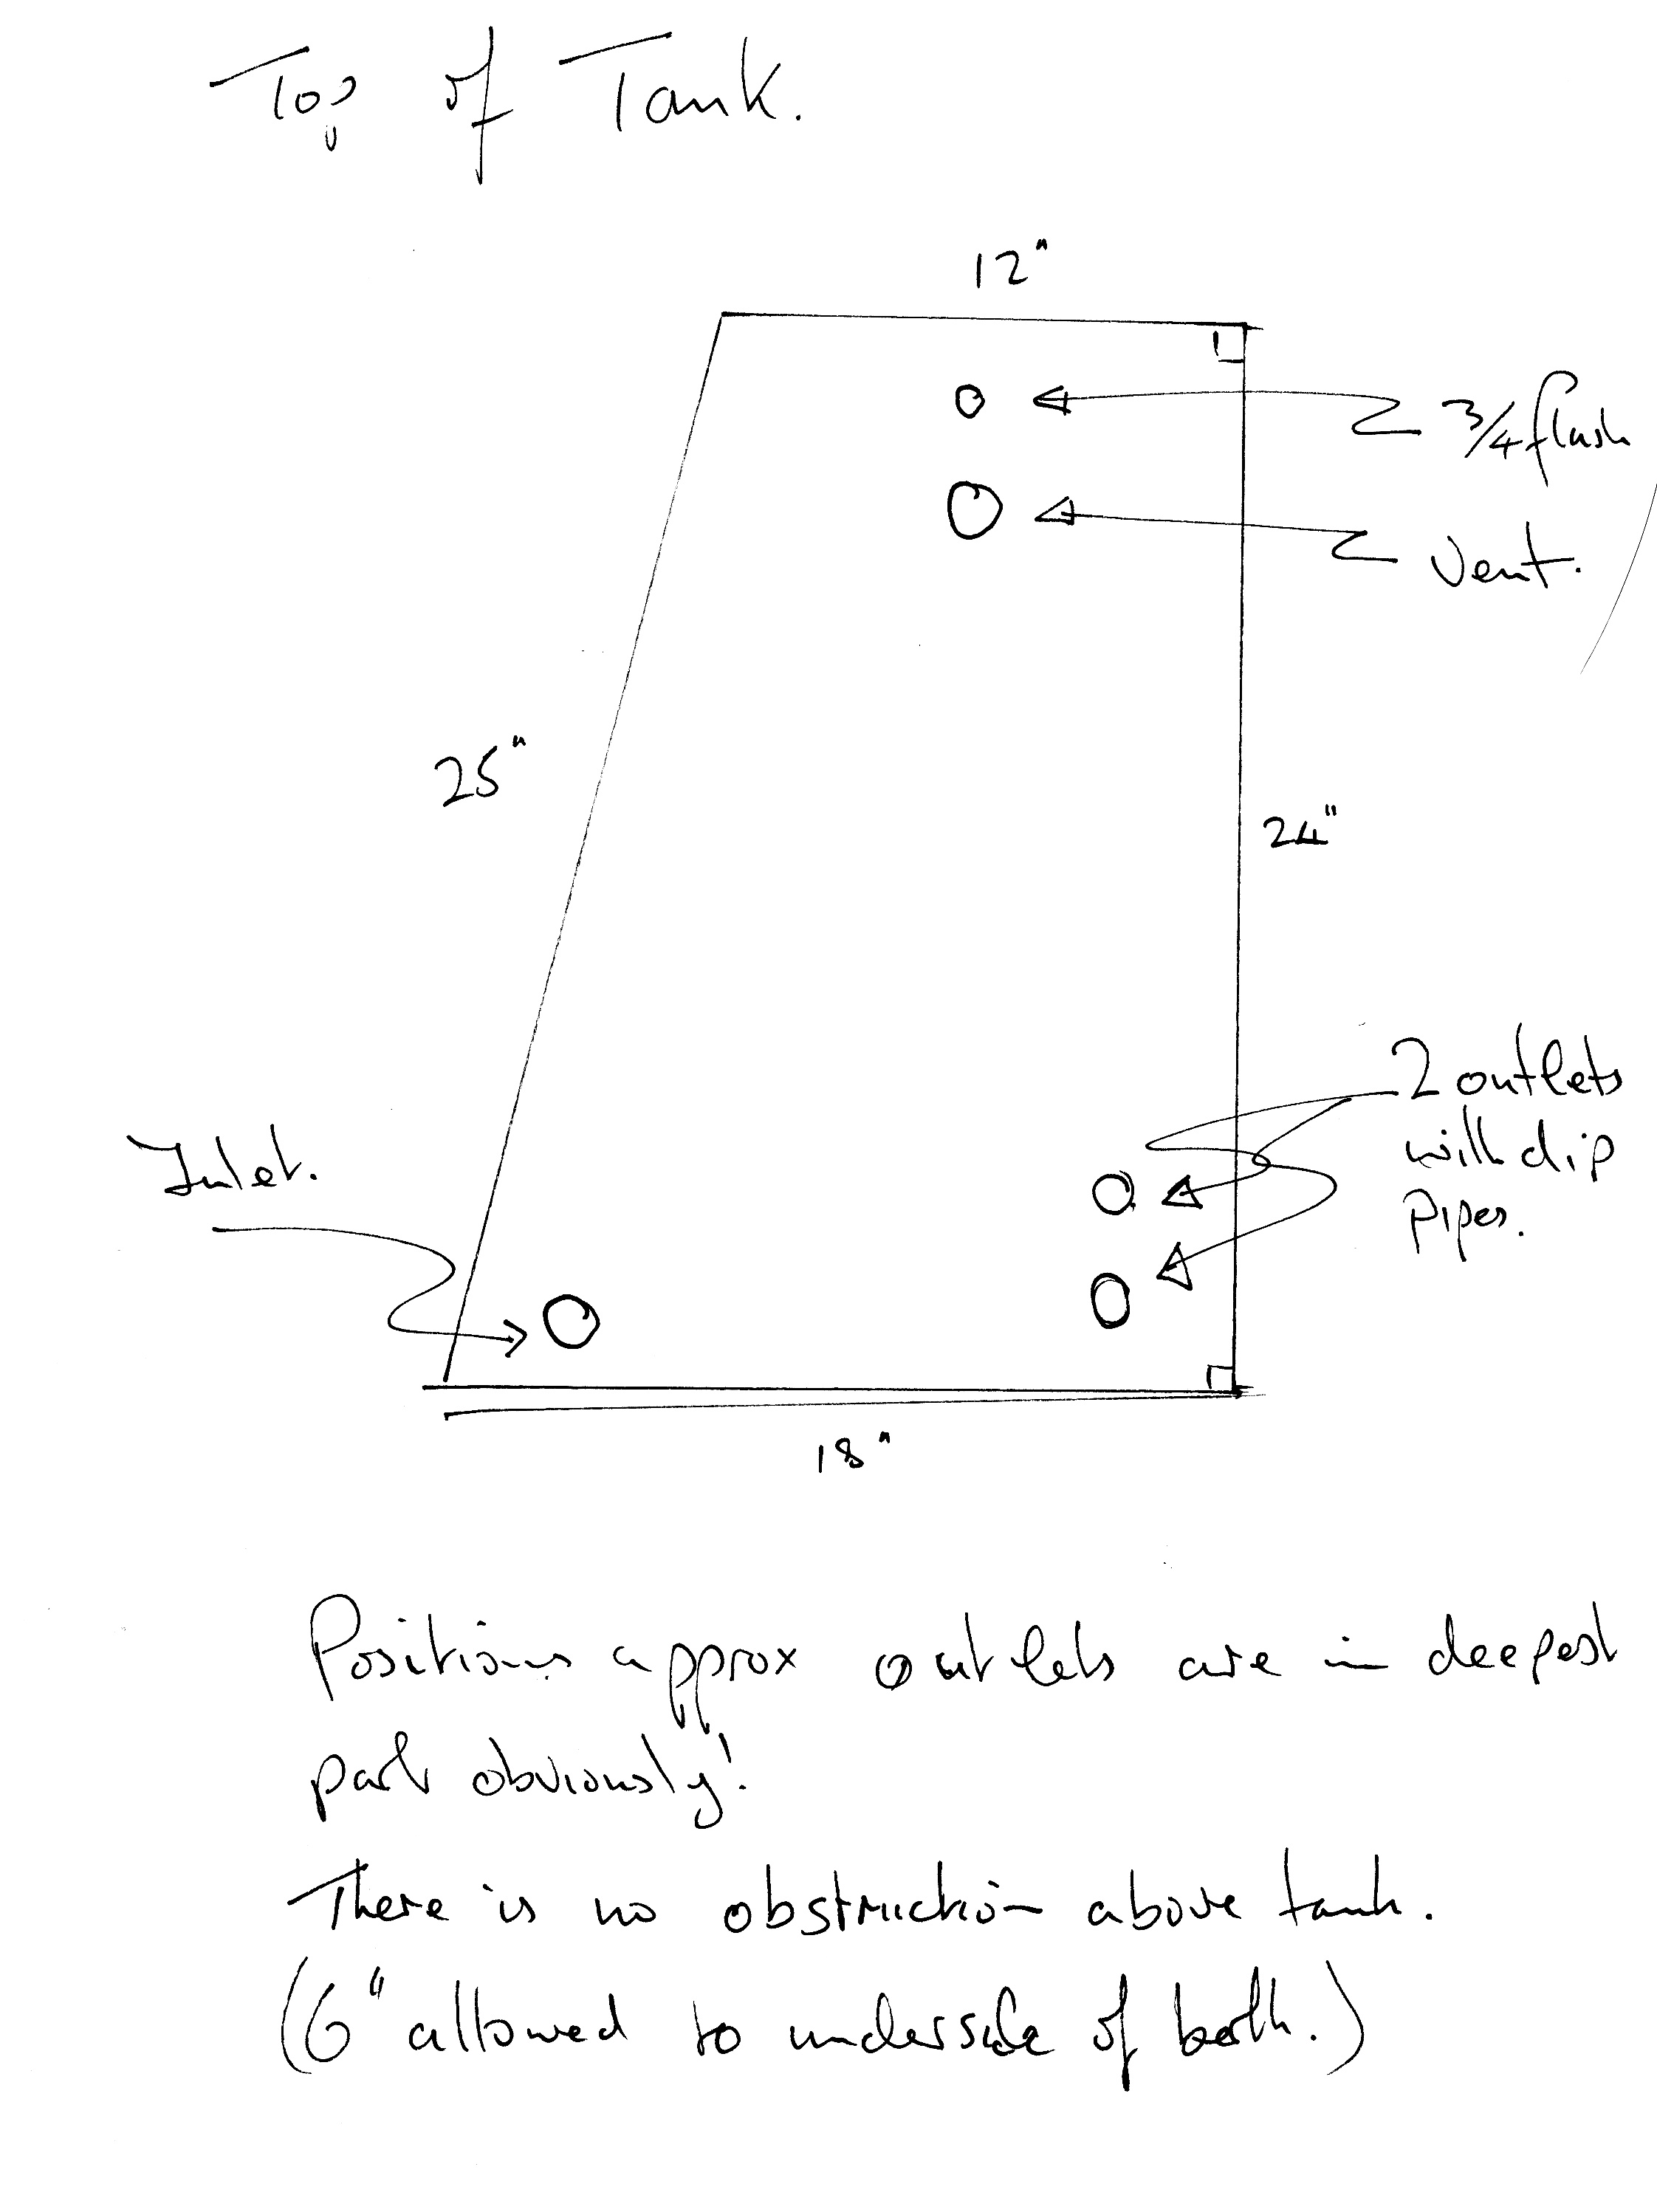 Top of Tank.
12"
3/4 flush
Vent.
25"
24"
2 outlets
with dip
Pipes.
Inlet.
18"
Positions approx outlets are in deepest
part obviously!
There is no obstruction above tank.
(6" allowed to underside of berth.)